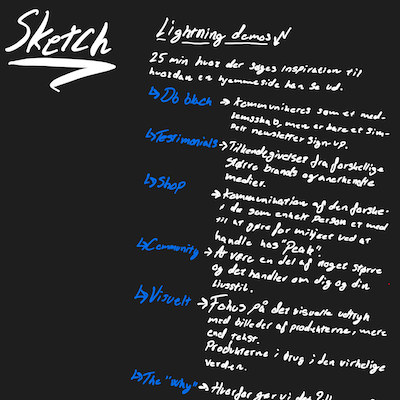 Sketch
Lightning demos
25 min hvor der søges inspiration til
hvordan en hjemmeside kan se ud.
↳ Do black → Kommunikeres som et med-
lemsskab, men er bare et sim-
pelt newsletter sign-up.
↳ Testimonials → Tilkendegivelser fra forskellige
større brands og anerkendte
medier.
↳ Shop
→ Kommunikation af den forske-
l de som enkelt person er med
til at gøre for miljøet ved at
handle hos "Peak".
↳ Community → At være en del af noget større
og det handler om dig og din
livsstil.
↳ Visuelt → Fokus på det visuelle udtryk
med billeder af produkterne, mere
end tekst.
Produkterne i brug i den virkelige
verden.
↳ The "why" → Hvorfor gør vi det?